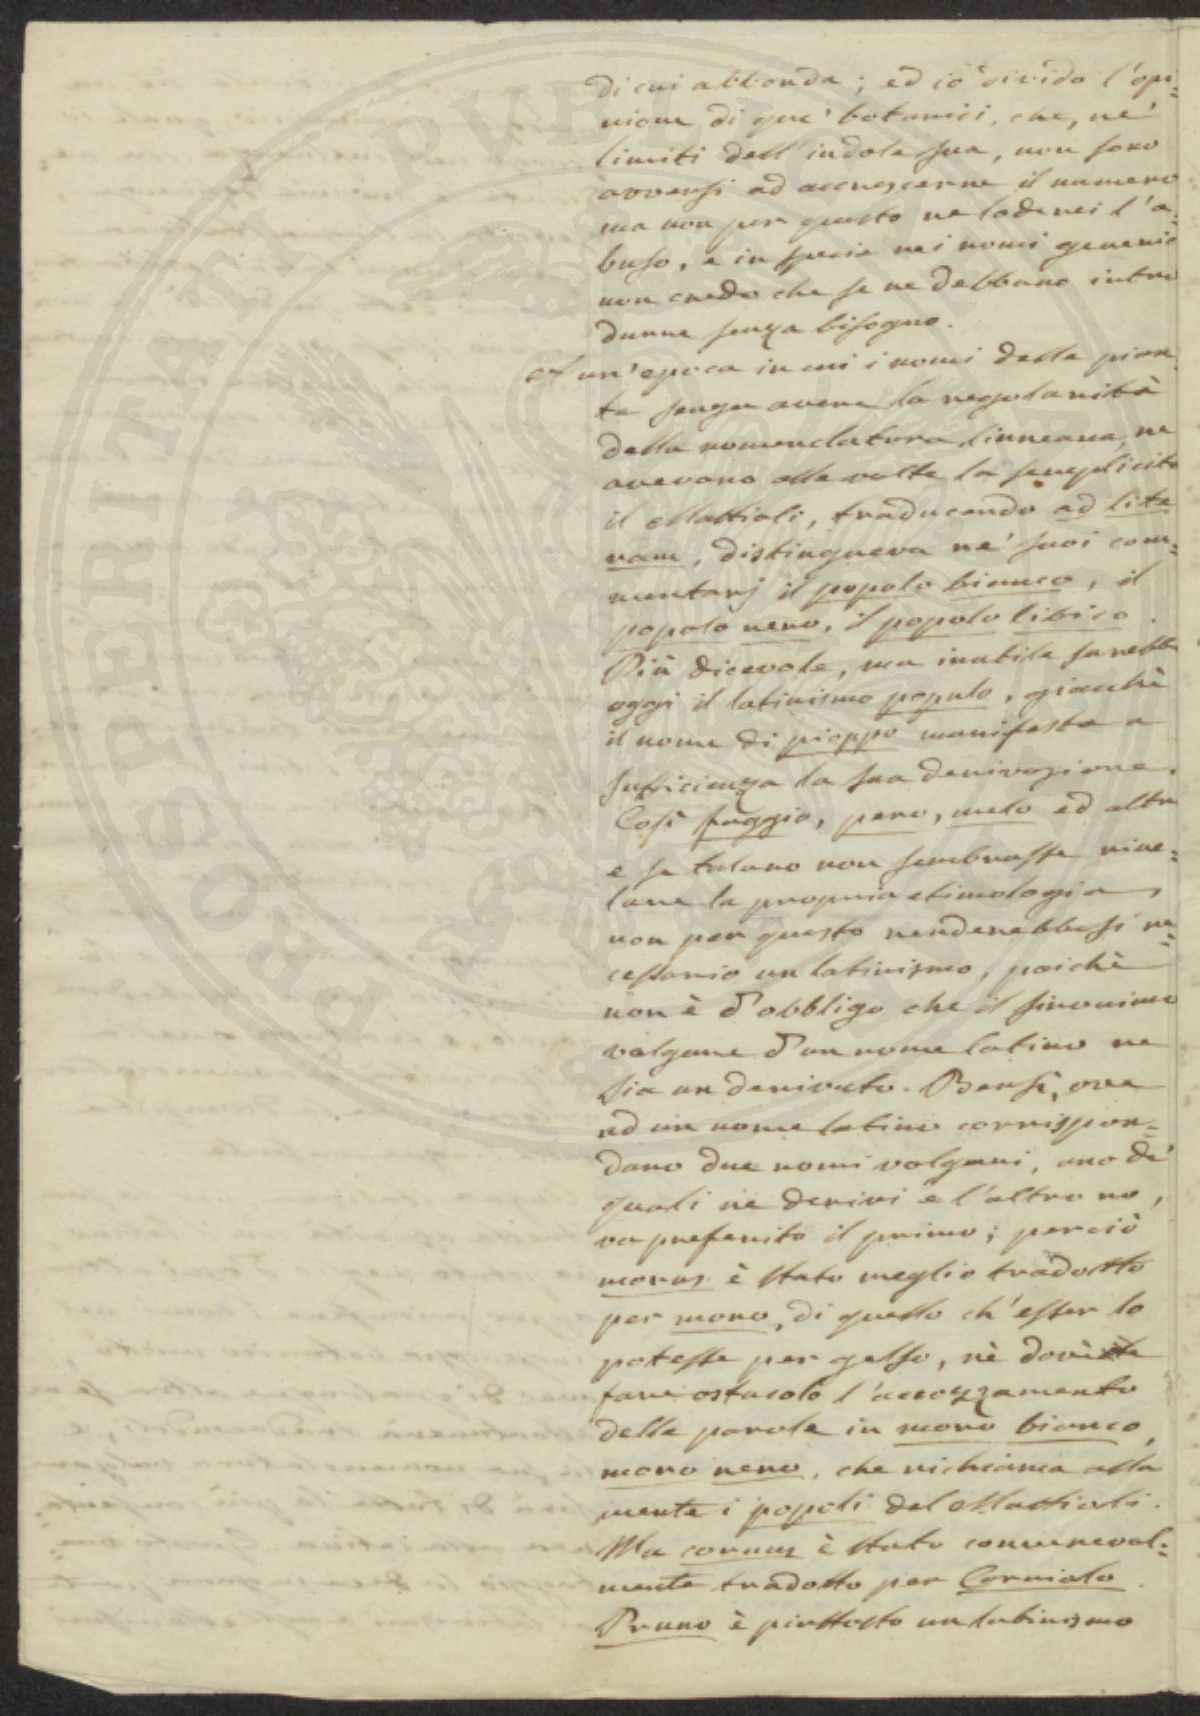 di cui abbonda; ed io divido l'opi=
nione di que' botanici, che, ne'
limiti dell'indole sua, non sono
avversi ad accrescerne il numero
ma non per questo ne loderei l'a=
buso, e in specie nei nomi generici
non credo che se ne debbano intro
durre senza bisogno.
A un'epoca in cui i nomi delle pian
te senza avere la regolarità
della nomenclatura linneana, ne
avevano alle volte la semplicità
il Mattioli, traducendo ad lite
ram, distingueva ne' suoi com=
mentarj il popolo bianco, il
popolo nero, il popolo libico.
Più dicevole, ma inutile sarebbe
oggi il latinismo populo, giacchè
il nome di pioppo manifesta a
sufficienza la sua derivazione.
Così faggio, pero, melo ed altri
e se taluno non sembrasse rive=
lare la propria etimologia,
non per questo renderebbesi ne=
cessario un latinismo, poichè
non è d'obbligo che il sinonimo
volgare d'un nome latino ne
sia un derivato. Bensì, ove
ad un nome latino corrispon=
dano due nomi volgari, uno de'
quali ne derivi e l'altro no,
va preferito il primo; perciò
morus è stato meglio tradotto
per moro, di quello ch'esser lo
potesse per gelso, nè dovè
fare ostacolo l'accozzamento
delle parole in moro bianco,
moro nero, che richiama alla
mente i popoli del Mattioli.
Ma cornus è stato convenevol=
mente tradotto per Corniolo.
Pruno è piuttosto un latinismo